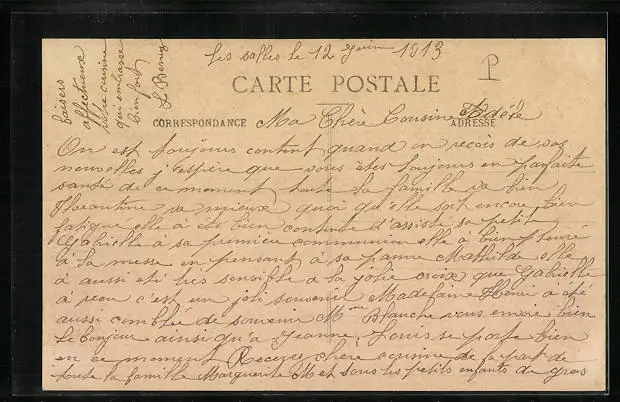 Les salles le 12 juin 1913
P
CARTE POSTALE
CORRESPONDANCE
ADRESSE
Ma Chère Cousine Adéle
On est toujours content quand on recois de vos
nouvelles j'éspère que vous êtes toujours en parfaite
santé de ce moment toute la famille va bien
Florantine va mieux quoi qu'elle soit encore bien
fatigue elle a été bien contente d'assisté sa petite
Gabrielle a sa première communion elle à bien pleuré
à la messe en pensant à sa pauvre Mathilde elle
à aussi eté très sensible a la jolie croix que Gabrielle
a recu c'est un joli souvenir Madelaine Henri a été
aussi comblée de souvenir Mme Blanche vous envoie bien
le bonjour ainsi qu'a Jeanne, Louis se porte bien
en ce moment Recevez chère cousine de la part de
toute la famille Marguerite M et tous les petits enfants de gros
baisers
affectueux
votre cousine
qui embrasse
bien fort